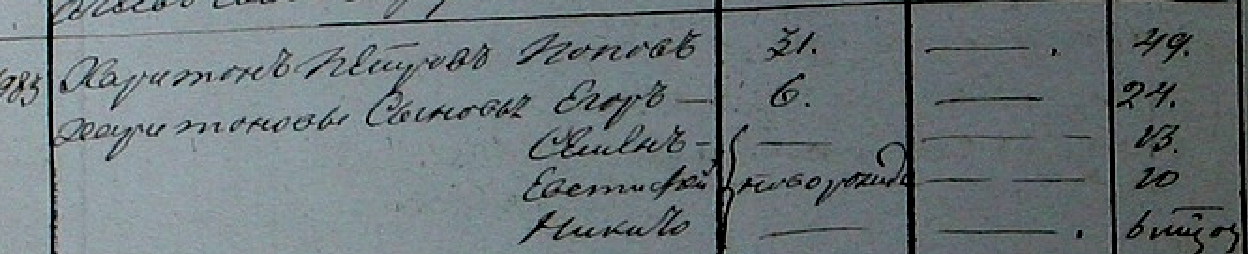 983 Харитонъ Петровъ Поповъ 31. 49.
Харитоновы Сыновья Егоръ 6. 24.
Семенъ 13.
Евстифей новорожде 10
Никита 6